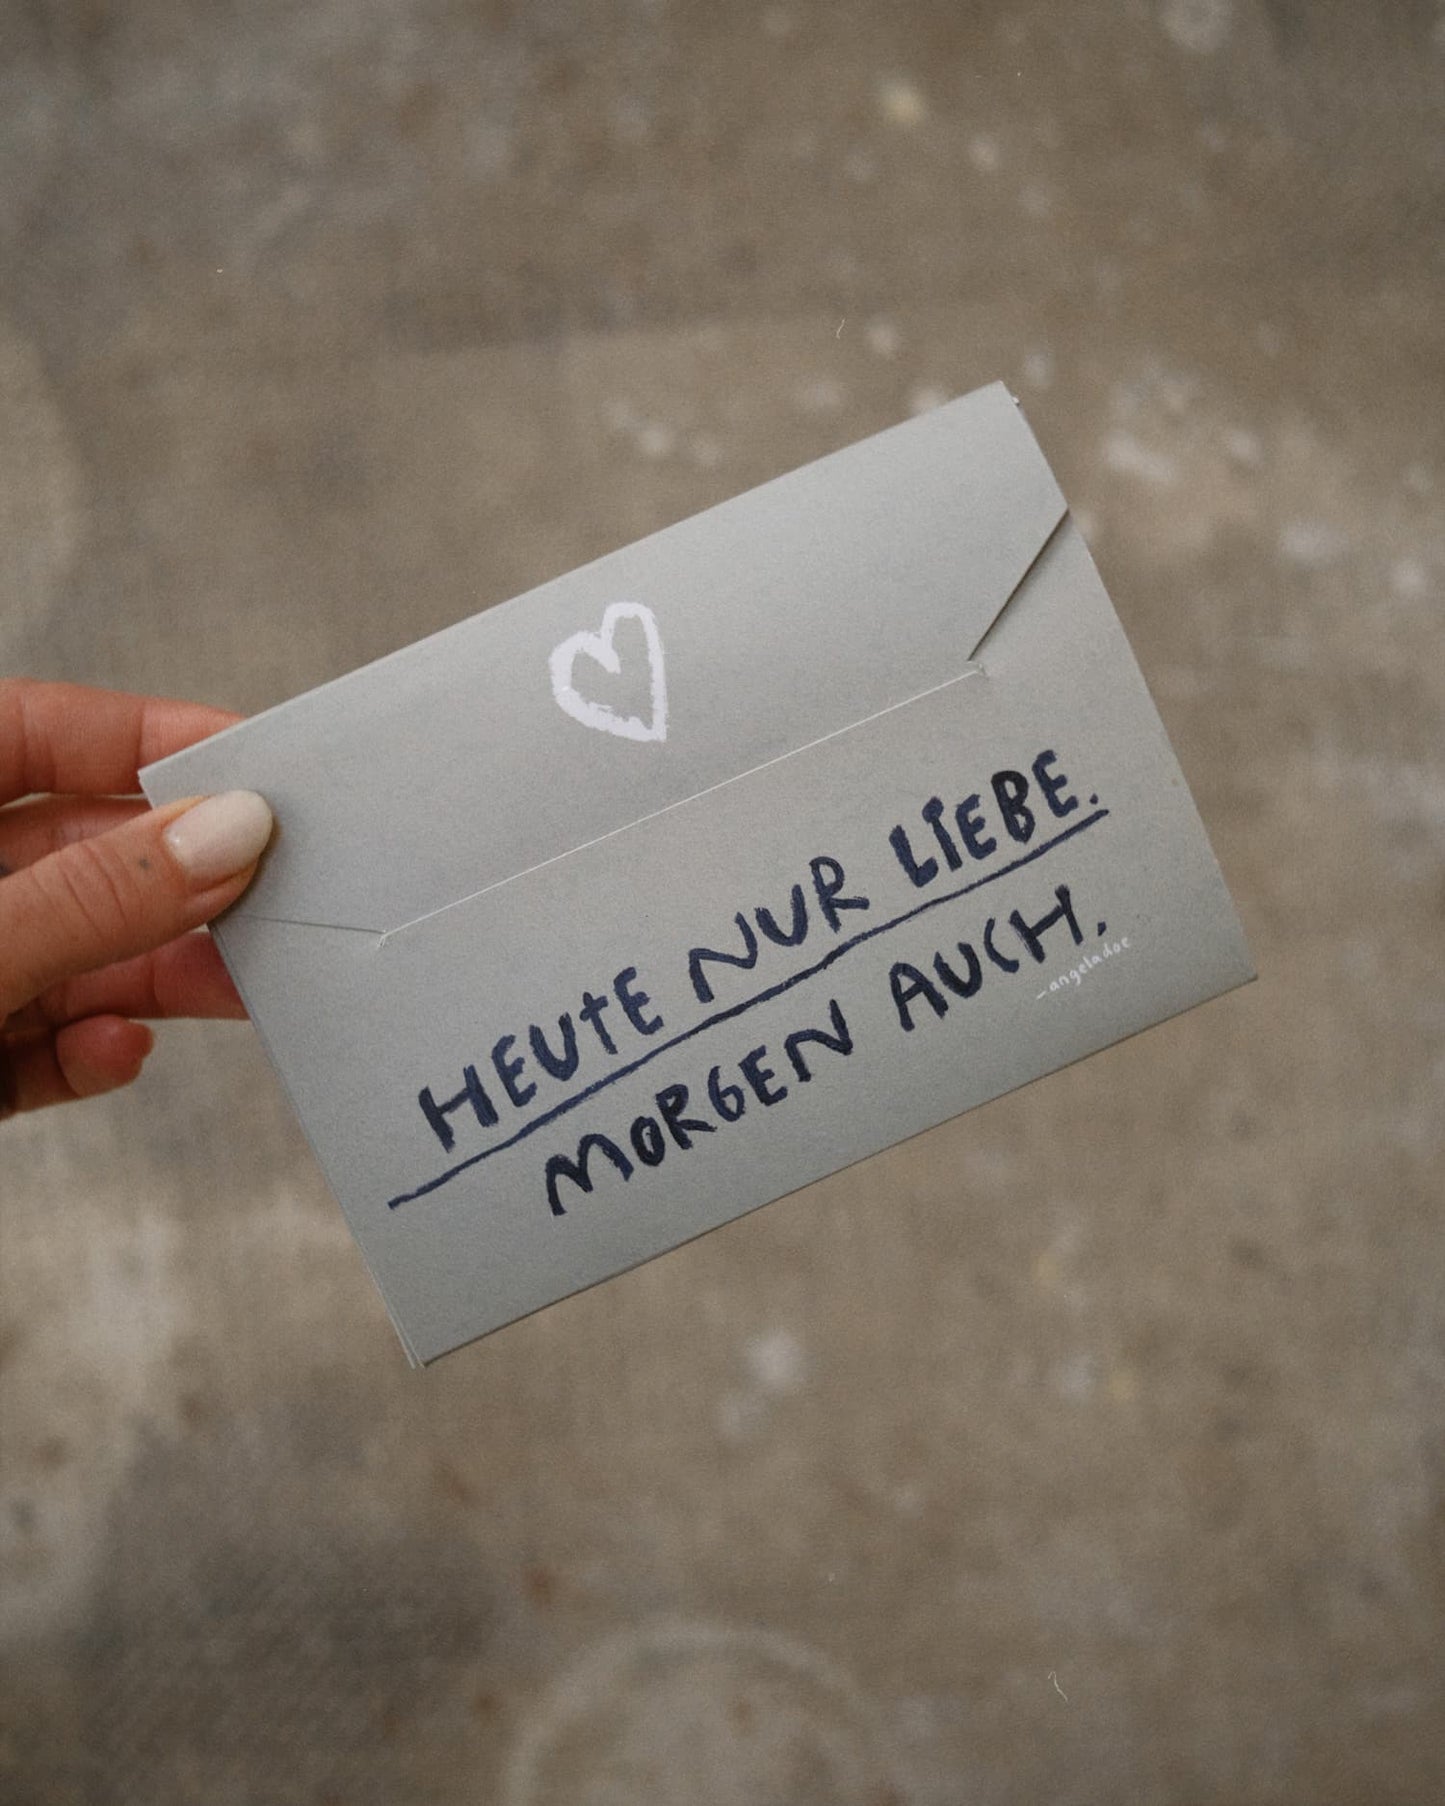 HEUTE NUR LIEBE.
MORGEN AUCH.
–angeladoe